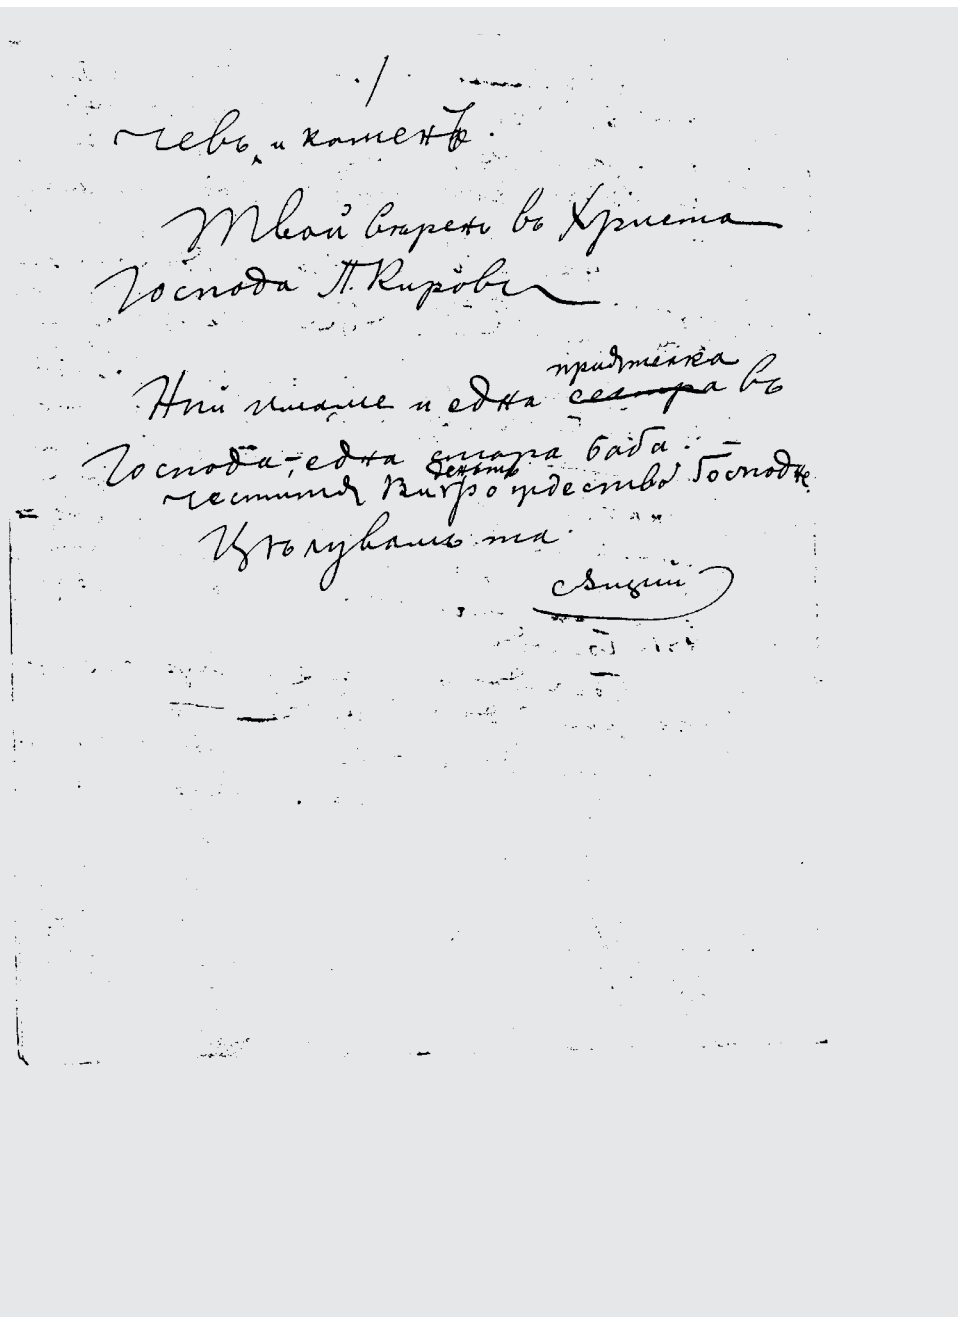 чевъ и
Твой вѣренъ въ Христа
Господа П. Кировъ
Ний имаме и една приятелка въ
Господа, една стара баба.
честитя Ви деньтъ Рождество Господне
Цѣлувамъ та
сѫщий